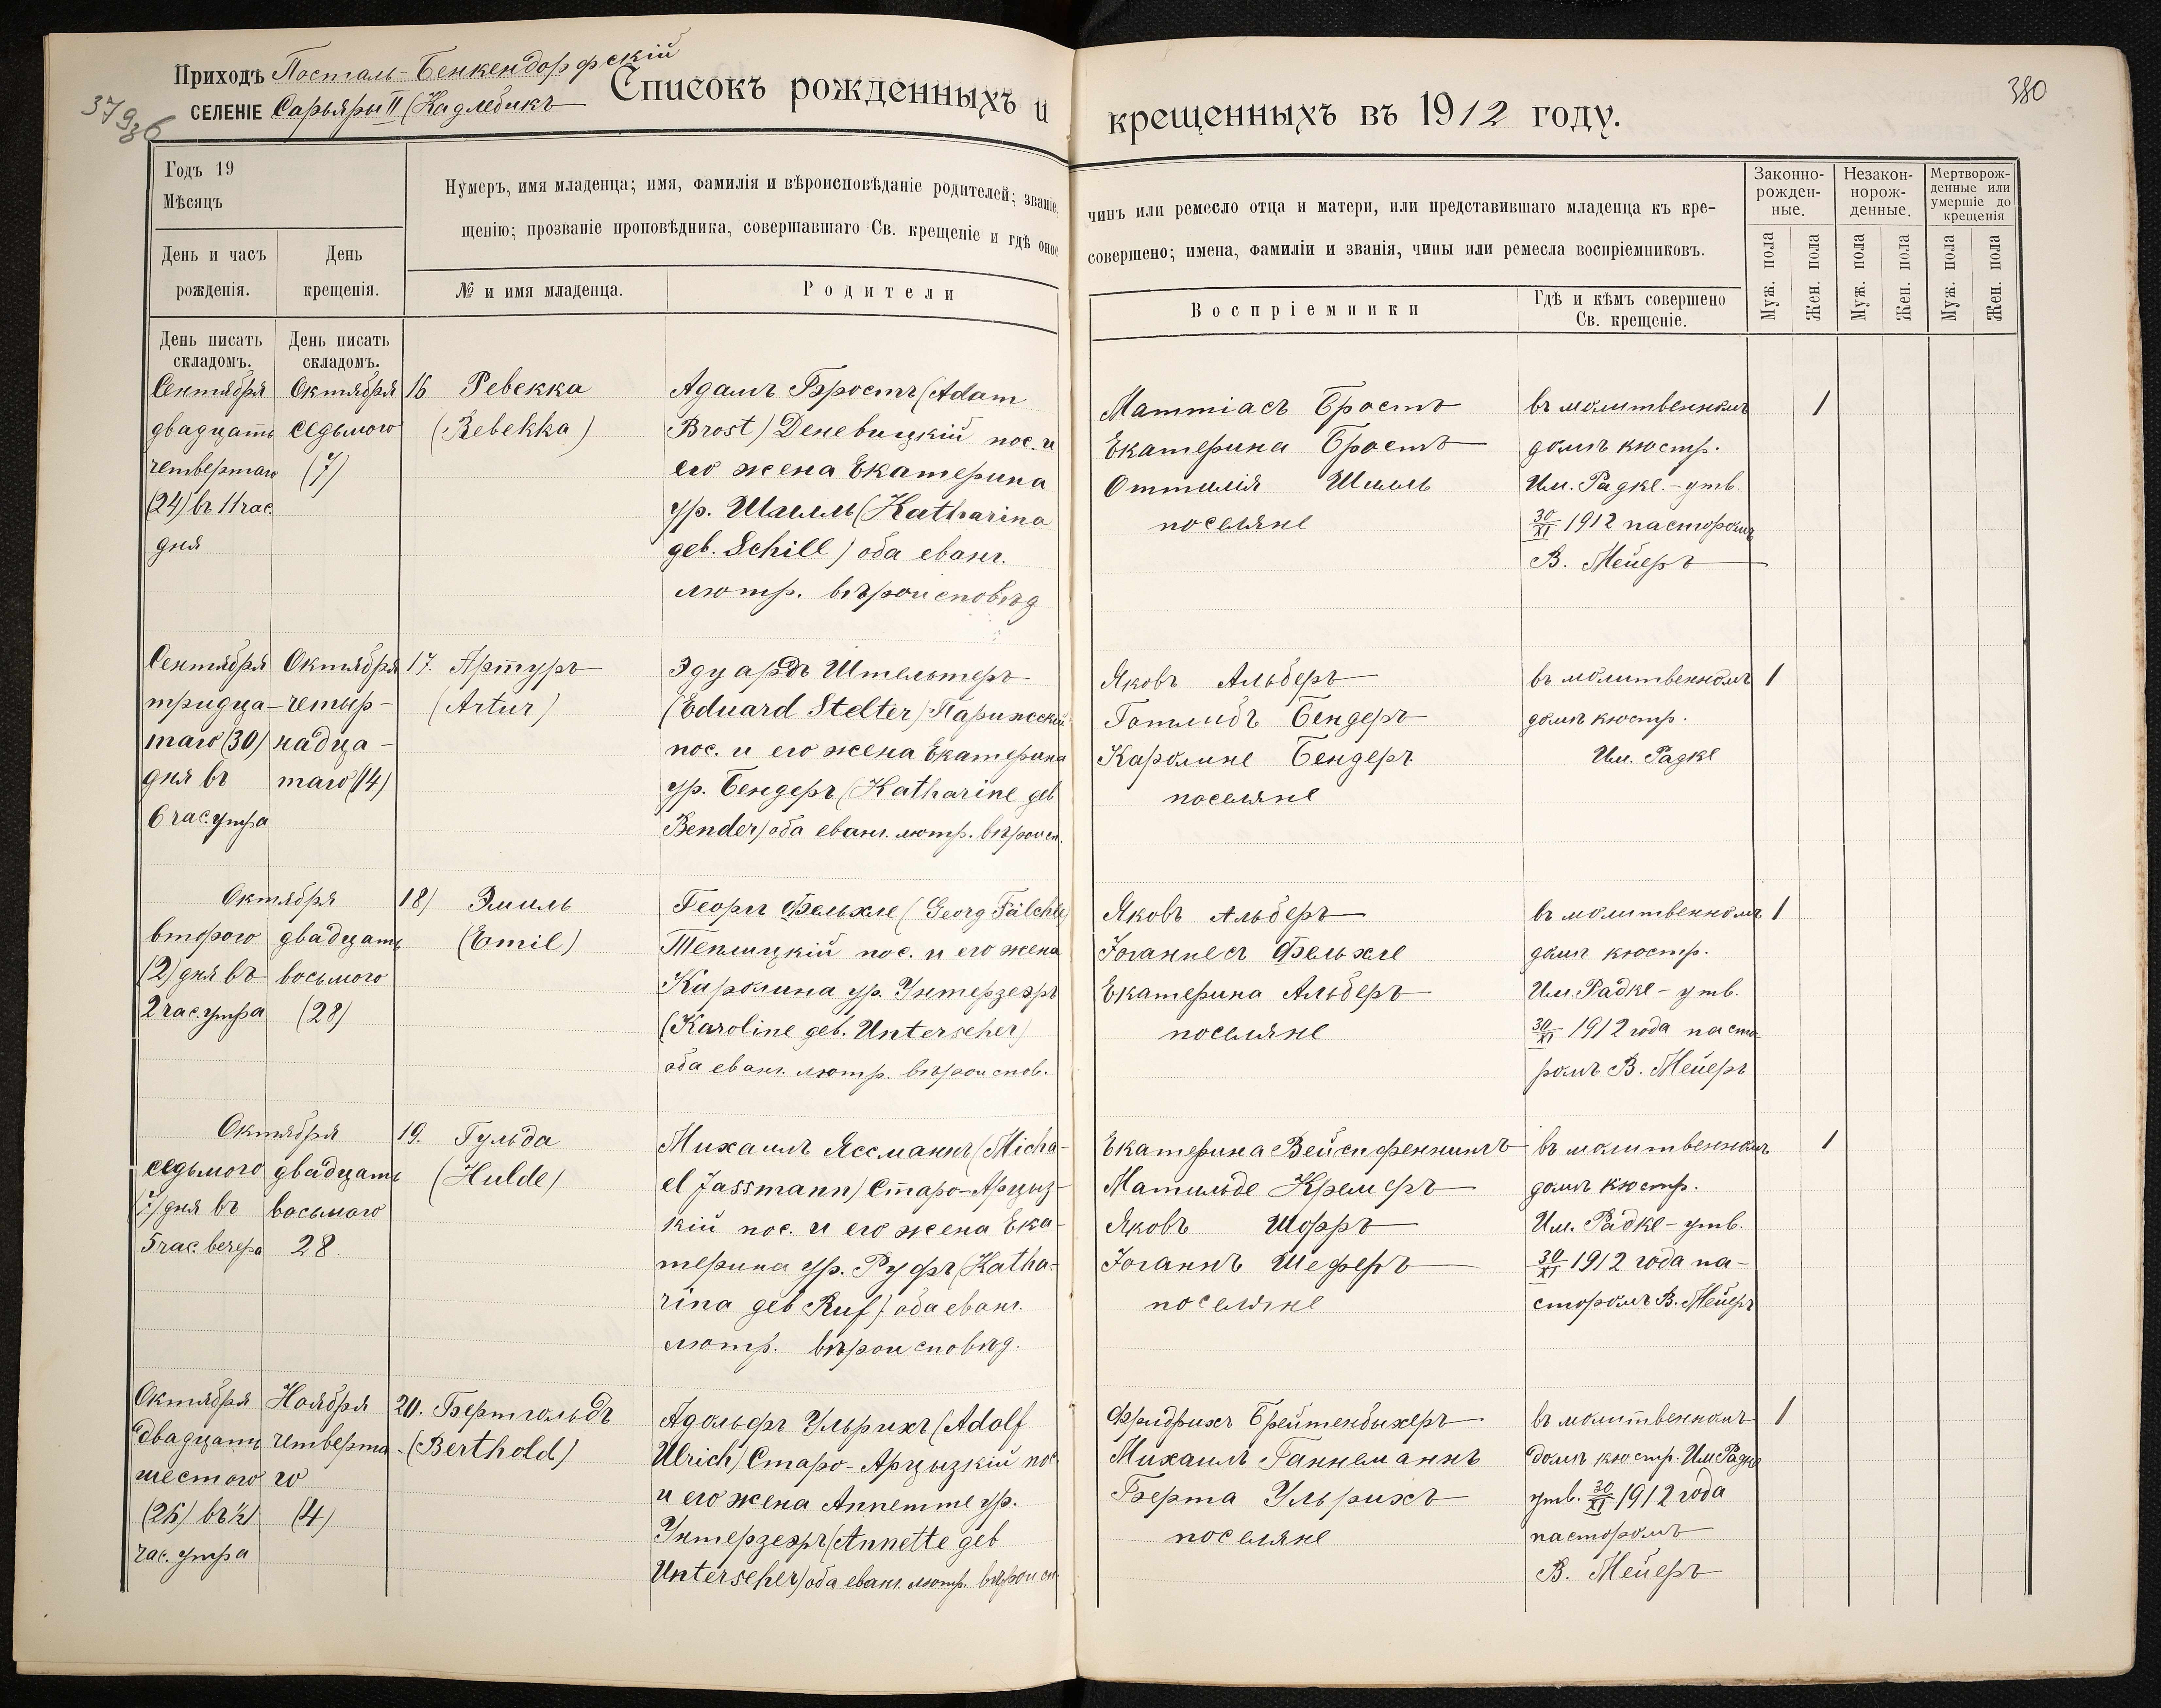 Приходъ Посталь-Бенкендорфскій
СЕЛЕНІЕ Сарьяры II (Кадлебикъ
Списокъ рожденныхъ и крещенныхъ въ 1912 году.
380
Годъ 19
Мѣсяцъ
День и часъ рожденія.
День крещенія.
Нумеръ, имя младенца; имя, фамилія и вѣроисповѣданіе родителей; званіе, чинъ или ремесло отца и матери, или представившаго младенца къ кре-
щенію; прозваніе проповѣдника, совершавшаго Св. крещеніе и гдѣ оное совершено; имена, фамиліи и званія, чины или ремесла воспріемниковъ.
№ и имя младенца.
Родители
Воспріемники
Гдѣ и кѣмъ совершено
Св. крещеніе.
Законно-
рожден-
ные.
Незакон-
норож-
денные.
Мертворож-
денные или
умершіе до
крещенія
Муж. пола
Жен. пола
Муж. пола
Жен. пола
Муж. пола
Жен. пола
День писать
складомъ.
День писать
складомъ.
Сентября
двадцать
четвертаго
(24) въ 11 час.
дня
Октября
седьмого
(7)
16 Ревекка
(Rebekka)
Адамъ Бростъ (Adam
Brost) Деневицкій пос. и
его жена Екатерина
ур. Шилль (Katharina
geb. Schill) оба еванг.
лютр. вѣроисповѣд
Маттіасъ Бростъ
Екатерина Бростъ
Оттилія Шилль
поселяне
въ молитвенномъ
домѣ кюстр.
Им. Радке. - утв.
30/XI 1912 пасторомъ
В. Мейеръ
1
Сентября
тридца-
таго (30)
дня въ
6 час. утра
Октября
четыр-
надца-
таго (14)
17. Артуръ
(Artur)
Эдуардъ Штельтеръ
(Eduard Stelter) Парижскій
пос. и его жена Екатерина
ур. Бендеръ (Katharine geb
Bender) оба еванг. лютр. вѣроисп.
Яковъ Альберъ
Готлибъ Бендеръ
Каролине Бендеръ
поселяне
въ молитвенномъ
домѣ кюстр.
Им. Радке
1
Октября
второго
(2) дня въ
2 час. утра
двадцать
восьмого
(28)
18) Эмиль
(Emil)
Георгъ Фельхле (Georg Fälchle)
Теплицкій пос. и его жена
Каролина ур. Унтерзееръ
(Karoline geb. Unterseher)
оба еванг. лютр. вѣроиспов.
Яковъ Альберъ
Іоганнесъ Фельхле
Екатерина Альберъ
поселяне
въ молитвенномъ
домѣ кюстр.
Им. Радке - утв.
30/XI 1912 года пасто-
ромъ В. Мейеръ
1
Октября
седьмого
(7) дня въ
5 час. вечера
двадцать
восьмого
28.
19. Гульда
(Hulde)
Михаилъ Яссманнъ (Micha-
el Jassmann) Старо-Арциз-
кій пос. и его жена Ека-
терина ур. Руфъ (Katha-
rina geb Ruf) оба еванг.
лютр. вѣроисповѣд.
Екатерина Вейспфеннингъ
Матильде Кремеръ
Яковъ Шорръ
Іоганнъ Шеферъ
поселяне
въ молитвенномъ
домѣ кюстр.
Им. Радке - утв.
30/XI 1912 года па-
сторомъ В. Мейеръ
1
Октября
двадцать
шестого
(26)
час. утра
Ноября
четверта-
го
(4)
20. Бертгольдъ
(Berthold)
Адольфъ Ульрихъ (Adolf
Ulrich) Старо-Арцизкій пос
и его жена Аннетте ур.
Унтерзееръ (Annette geb
Unterseher) оба еванг. лютр. вѣроисп
Фридрихъ Брейтенбихеръ
Михаилъ Ганнеманнъ
Берта Ульрихъ
поселяне
въ молитвенномъ
домѣ кюстр. Им Радке
утв. 30/XI 1912 года
пасторомъ
В. Мейеръ
1